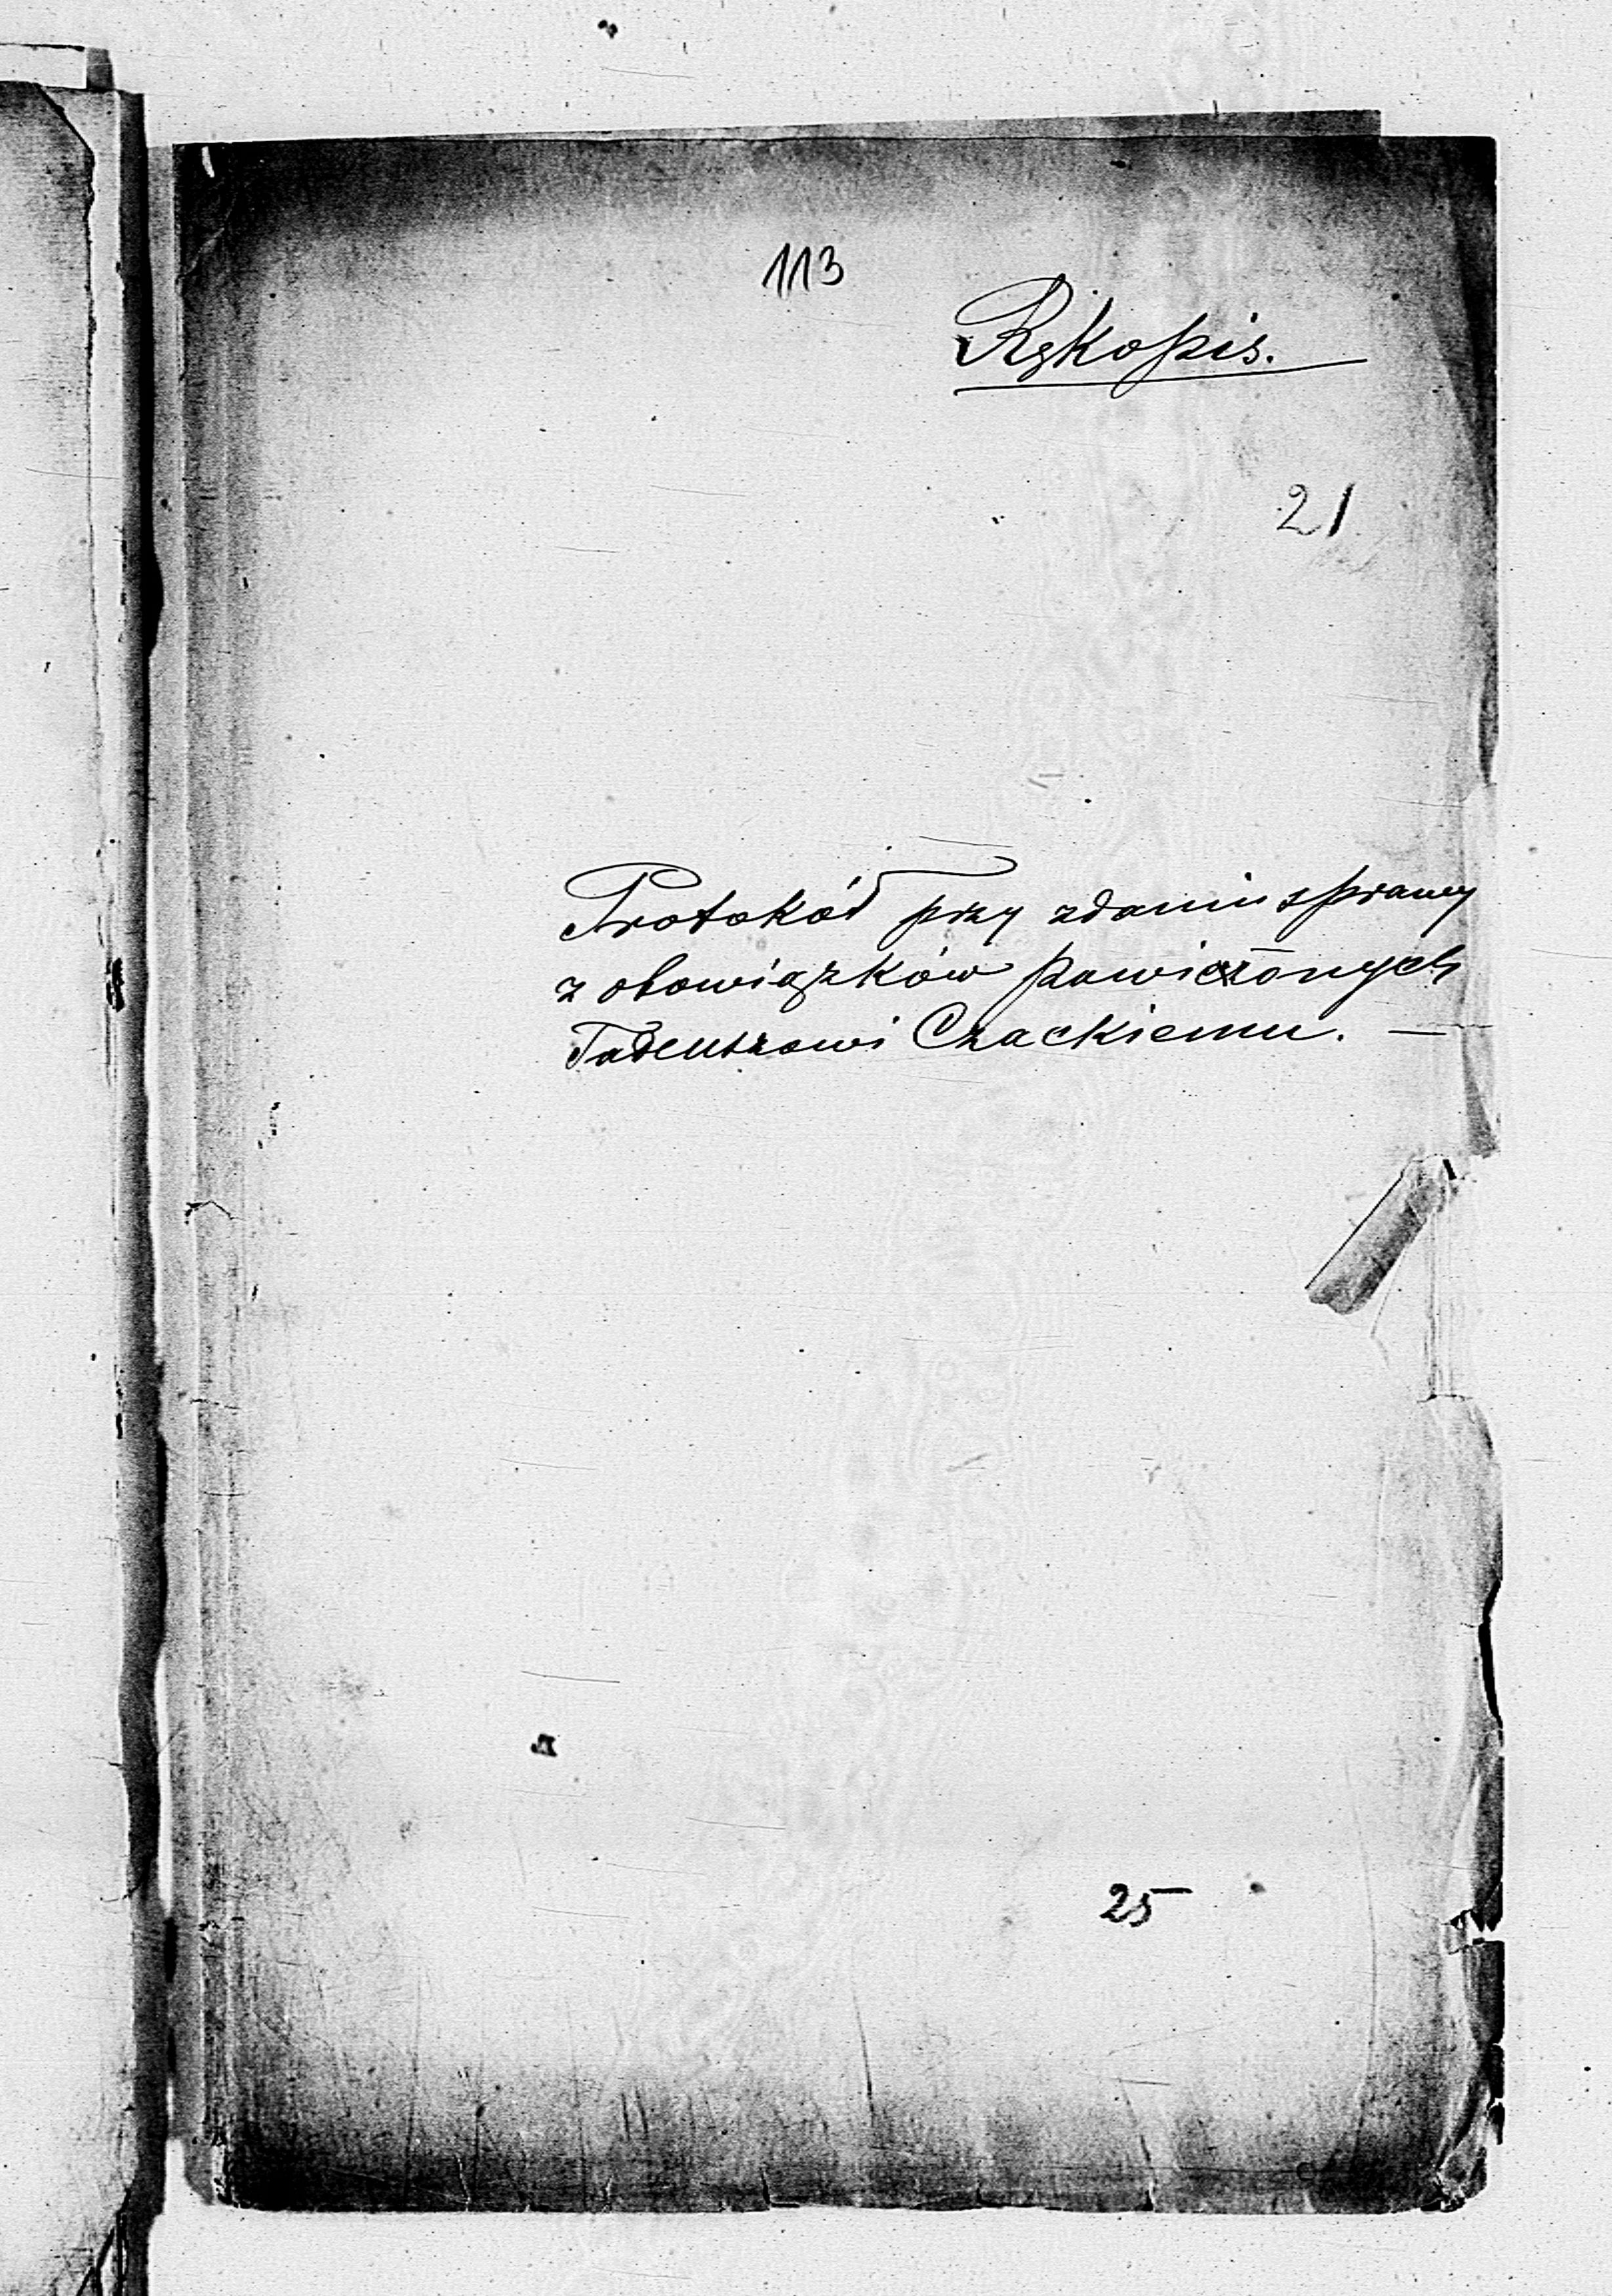 113
Rękopis.
21
Protokół przy zdaniu sprawy
z obowiązków powierzonych
Tadeuszowi Czackiemu. —
25